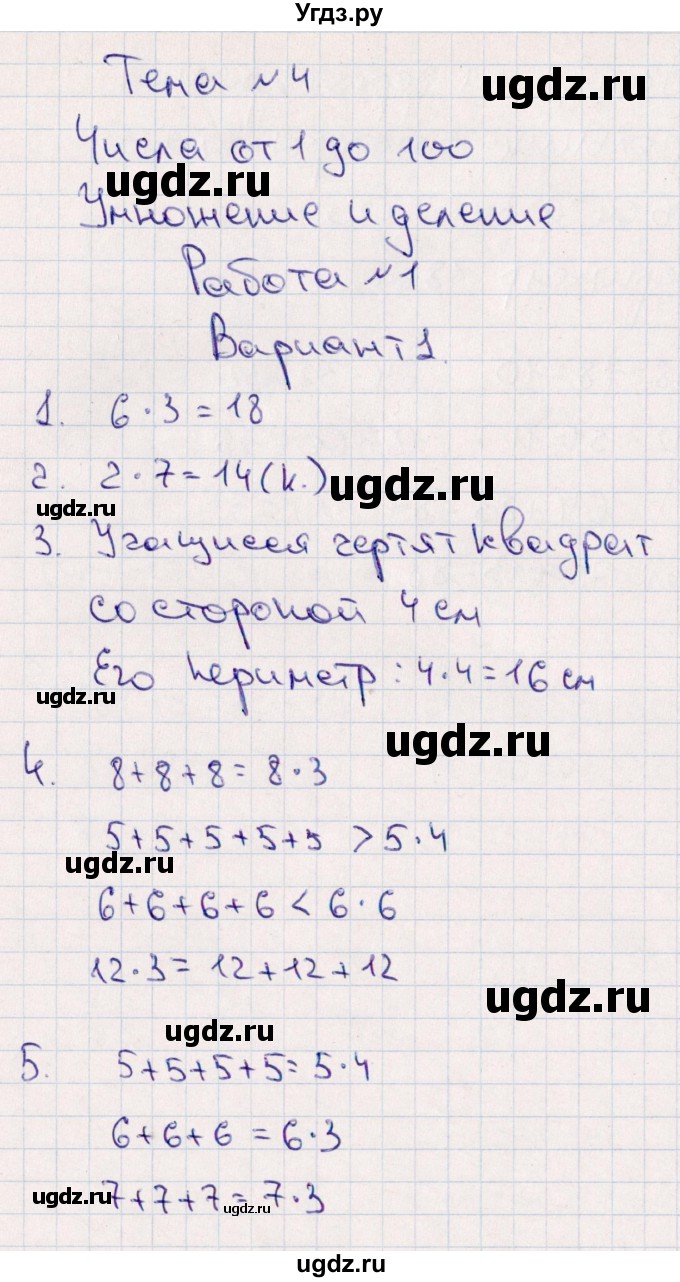 Угдз.ру
Тема №4
ugdz.ru
Числа от 1 до 100
ugdz.ru
Умножение и деление
Работа №1
Вариант 1.
1. 6·3=18
2. 2·7=14(к.)
ugdz.ru
ugdz.ru
3. Учащиеся чертят квадрат
со стороной 4 см
Его периметр: 4·4=16 см
ugdz.ru
ugdz.ru
4. 8+8+8=8·3
5+5+5+5+5 >5·4
ugdz.ru
6+6+6+6<6·6
12·3=12+12+12
ugdz.ru
ugdz.ru
5. 5+5+5+5=5·4
6+6+6=6·3
ugdz.ru
7+7+7=7·3
ugdz.ru
ugdz.ru